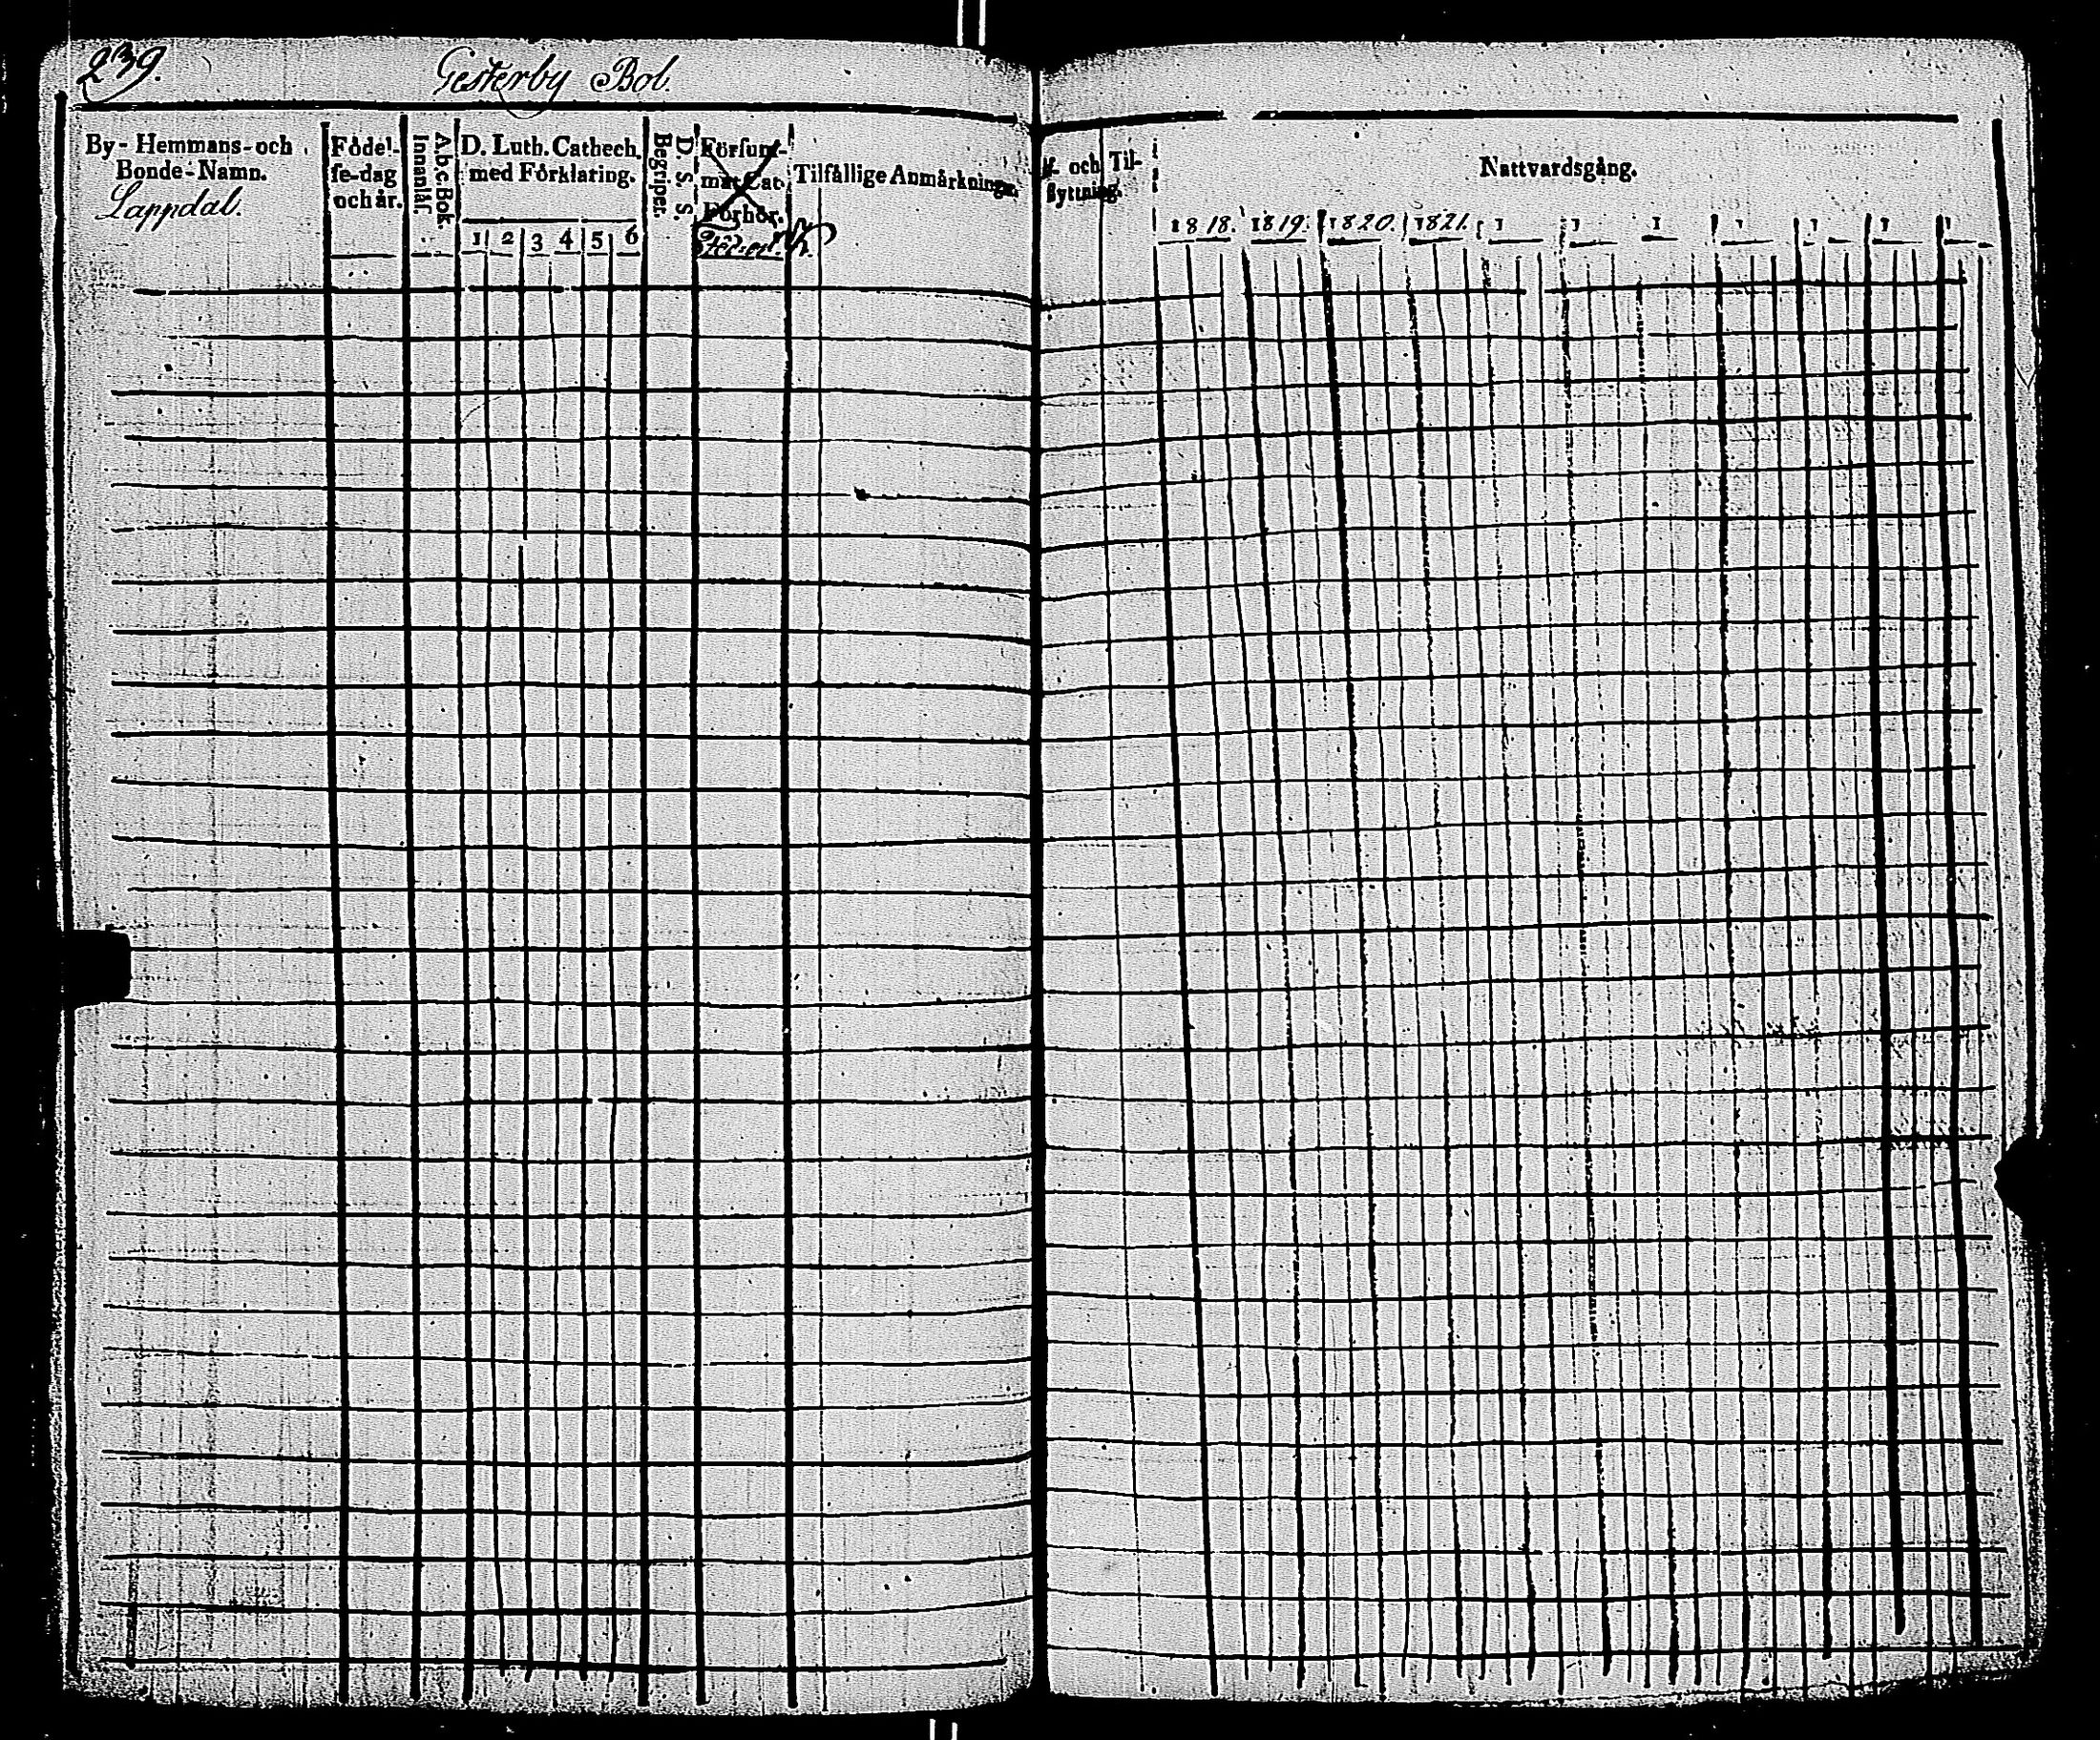 239.
Gesterby Bol.
By-Hemmans-och
Bonde-Namn.
Lappdal.
Fődel-
se-dag
och år.
A.b.c. Bok.
Innanläs.
D. Luth. Cathech.
med Főrklaring.
1 2 3 4 5 6
D. S. S.
Begriper.
Försum-
mat Cat.
Förhör.
Tilfällige Anmärkningar.
och Til-
flyttning.
Nattvardsgång.
1818. 1819. 1820. 1821. 1 1 1 1 1 1 1